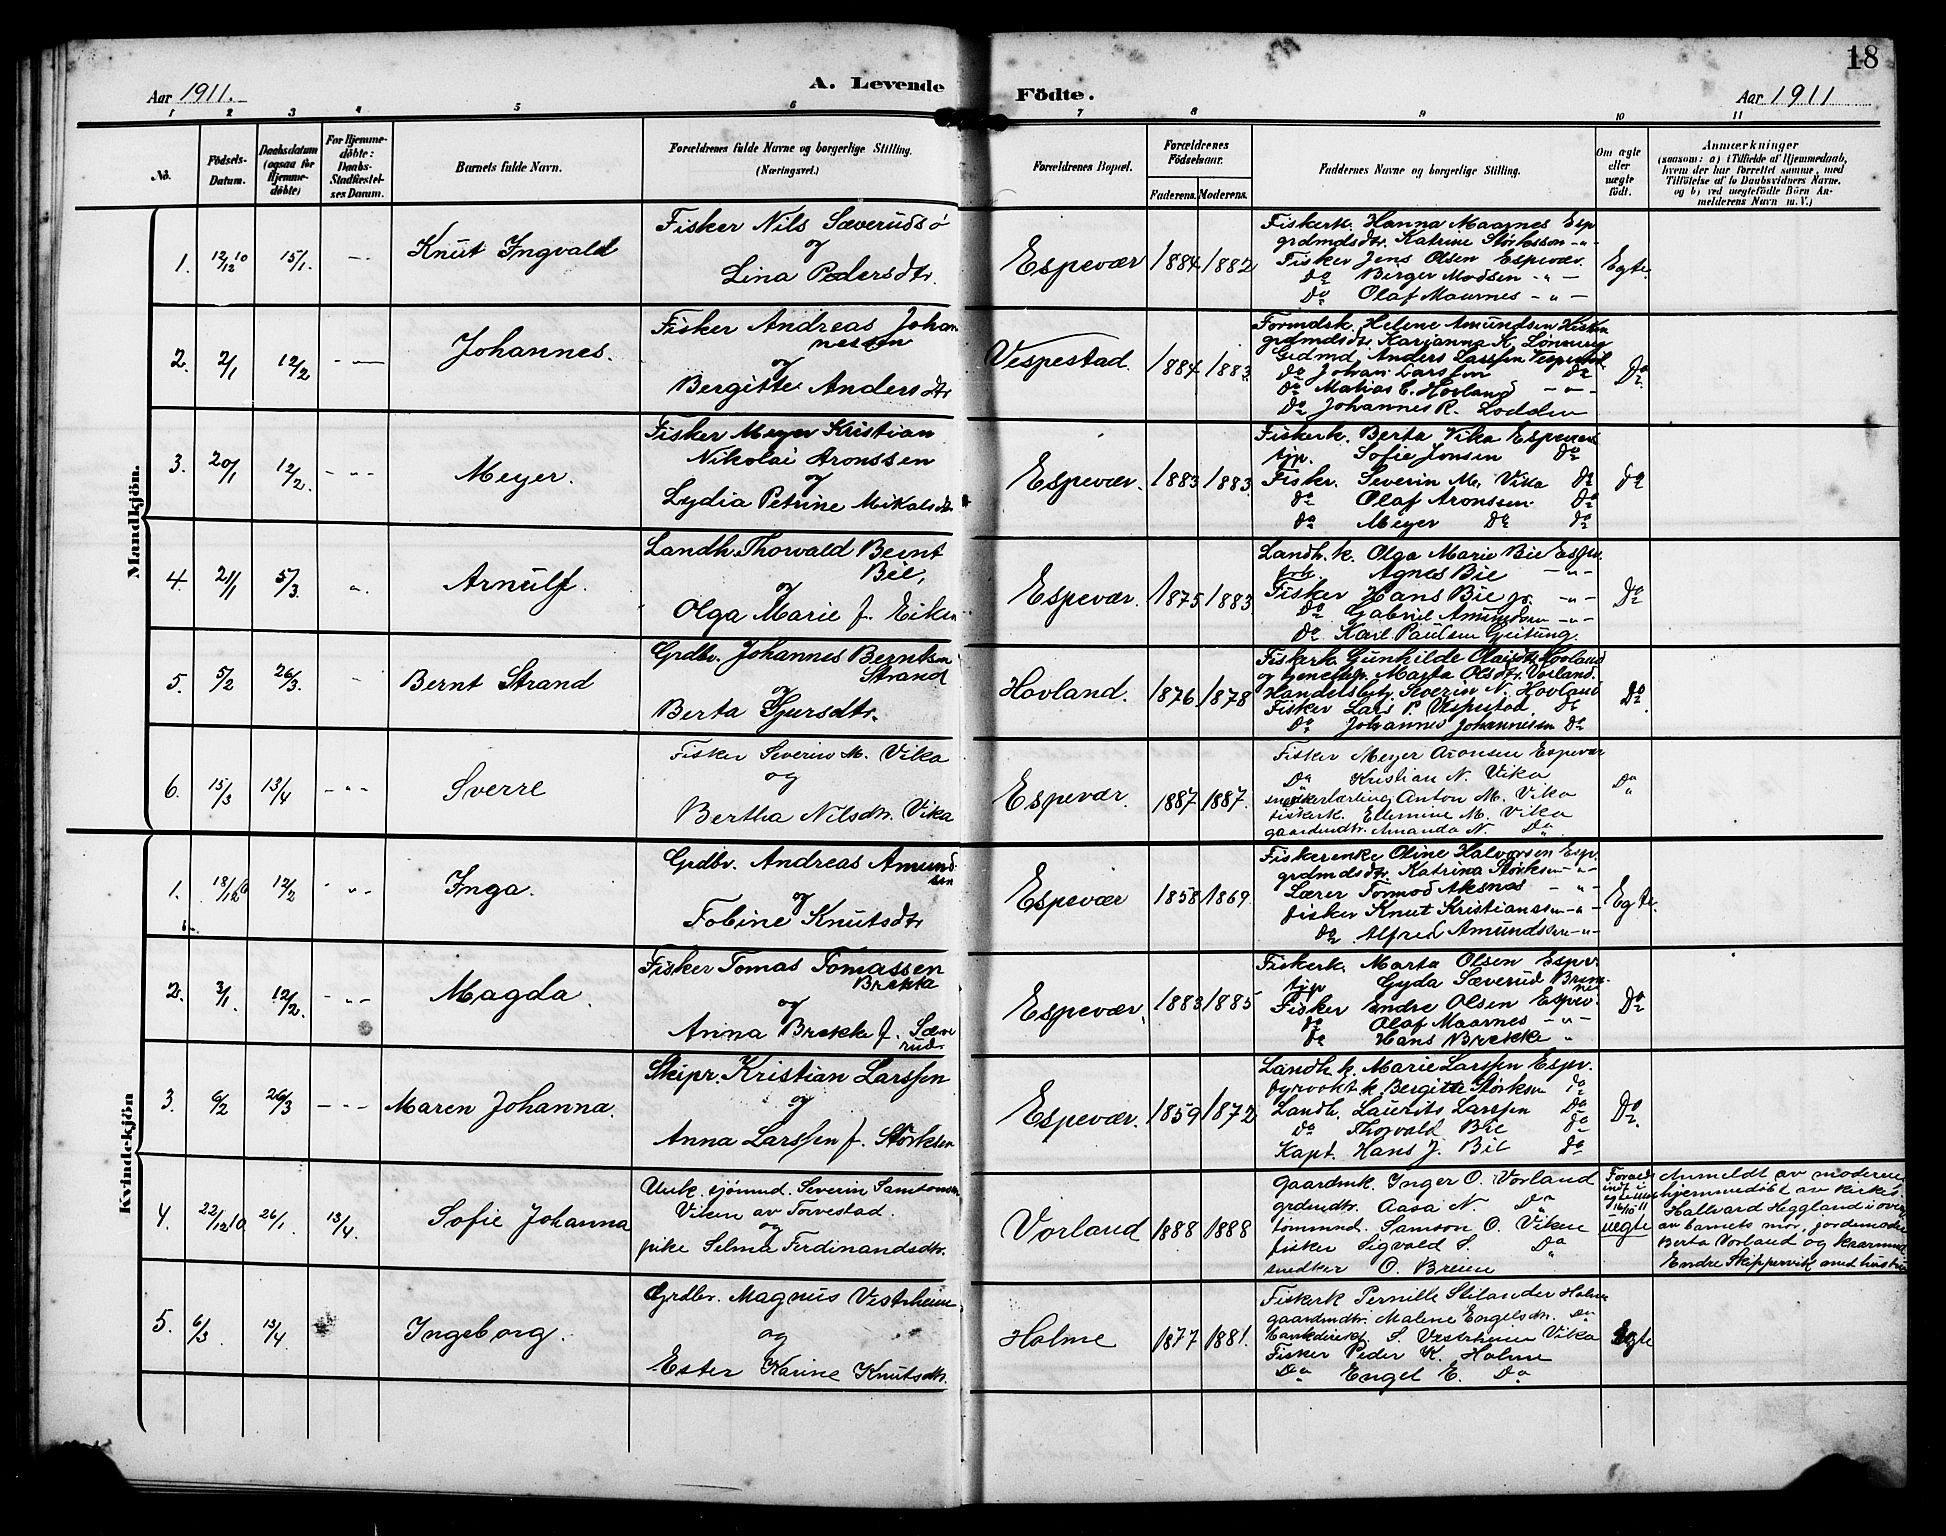 18
Aar 1911.
A. Levende
Födte.
Aar 1911
1 2 3 4 5 6 7 8 9 10 11
No.
Födsels-Datum.
Daabsdatum (ogsaa for Hjemmedöbte)
For Hjemmedöbte: Daabs-Stadfæstelses Datum.
Barnets fulde Navn.
Forældrenes fulde Navne og borgerlige Stilling. (Næringsvei.)
Forældrenes Bopæl.
Forældrenes Födselsaar.
Faderens. Moderens.
Faddernes Navne og borgerlige Stilling.
Om ægte eller uægte födt.
Anmærkninger
(saasom: a) i Tilfælde af Hjemmedaab,
hvem der har forrettet samme, med
Tilföielse af to Daabsvidners Navne,
og b) ved uægtefödte Börn Anmelderens Navn m. V.)
Mandkjön.
1. 12/12 10 15/1. -„- Knut Ingvald
Fisker Nils Sæverudsö
og
Lina Pedersdtr.
Espevær 1884 1882
Fiskerk. Hanna Maarnes Esp
grdmdsdtr. Katrine Störksson -„-
Fisker Jens Olsen Espevær.
Do Birger Madsen -„-
Do Olaf Maarnes -„-
Egte.
2. 2/1 12/2 -„- Johannes.
Fisker Andreas Johan
nessen
og
Bergitte Andersdtr
Vespestad. 1884 1883.
Formdsk. Helene Amundsen
grdmdsdtr. Karianna K. Lönning
Grdmd. Anders Larssen Vespestad.
do Johan Larssen Do
do Matias E. Hovland -„-
Do Johannes R. Lodden
Do
3. 20/1 12/2. -„- Meyer.
Fisker Meyer Kristian
Nikolai Aronssen
og
Lydia Petrine Mikalsdtr
Espevær. 1883 1883.
Fiskerk. Berta Vika Espevær
tjp. Sofie Jonsen Do
Fiskr. Severin M. Vika Do
do Olaf Aronssen Do
do Meyer Do do
do
4. 21/1 5/3. „. Arnulf.
Landh. Thorvald Bernt
Bie,
og
Olga Marie f. Eiken
Espevær. 1875 1883
Landh. k. Olga Marie Bie Espv.
Agnes Bie -„-
Fisker Hans Bie jr. -„-
Do Gabriel Amundsen -„-
Do Karl Paulsen Geitung.
Do
5. 5/2 26/3. Bernt Strand
Grdbr. Johannes Berntsen
Strand
og
Berta Gjursdtr.
Hovland. 1876 1878
Fiskerk. Gunhilde Olaisdtr. Hovland
og Marta Olsdtr. Vorland.
Handelsbetj. Severin N. Hovland
Fisker Lars P. Vespestad. do
Do Johannes Johannessen do
Do.
6. 15/3 13/4 -„- Sverre
Fisker Severin M. Vika
og
Bertha Nilsdtr. Vika
Espevær. 1887 1887.
Fisker Meyer Aronsen Espevær
Do Kristian N. Vika
snedkerlærling Anton M. Vika
fiskerk. Ellemine M. Vika
gaardmdtr. Amanda N. Do
Do
Kvindekjön
1. 18/12 10 12/2 -„- Inga.
Grdbr. Andreas Amund
sen
og
Tobine Knutsdtr
Espevær 1858 1869
Fiskerenke Oline Halvorsen Esp.
grdmdsdtr. Katrina Störksen -„-
Lærer Tormod Aksnes -„-
fisker Knut Kristianssen -„-
Do Alfred Amundssen -„-
Egte.
2. 3/1. 12/2. -„- Magda.
Fisker Tomas Tomassen
Brekke
og
Anna Brekke f. Sæve
rud.
Espevær. 1883 1885
Fiskerk. Marta Olsen Espv.
tjp Gyda Sæverud
Fisker Endre Olsen Espev.
do Olaf Maarnes -„-
do Hans Brekke „
Do
3. 6/2 26/3 -„- Maren Johanna.
Skipr. Kristian Larssen
og
Anna Larssen f. Störksen
Espevær. 1859 1872
Landh. k. Marie Larssen Espv.
fyrvokt. k. Bergitte Störksen do
Landh. Laurits Larssen Do
Do Thorvald Bie do
Kapt. Hans J. Bie do
Do.
4. 22/12 10 26/1. 13/4. Sofie Johanna
Unk. sjömnd. Severin Samsonsen
Viken av Torvestad.
og
pike Selma Ferdinandsdtr.
Vorland 1888 1888
gaardmk. Inger O. Vorland
grdmdtr. Aasa N. Do
tömmnd. Samson O. Vikene
fisker Sigvald S. Do
snedker O. Breien
16/10 11
uegte
Anmeldt av moderen
hjemmedöbt av kirkes.
Hallvard Heggland i overv.
av barnets mor, jordemoder
Berta Vorland og kaarmnd
Endre Skippervik med hustru
5. 6/3 13/4 Ingeborg.
Grdbr. Magnus Vestrheim
og
Ester Karine Knutsdtr.
Holme 1877 1881.
Fiskerk Pernille Stilander Holme
gaardmdtr. Malene Engelsdtr. Do
S. Vestrheim Vika
Fisker Peder K. Holme
Do Engel E. Do
Egte